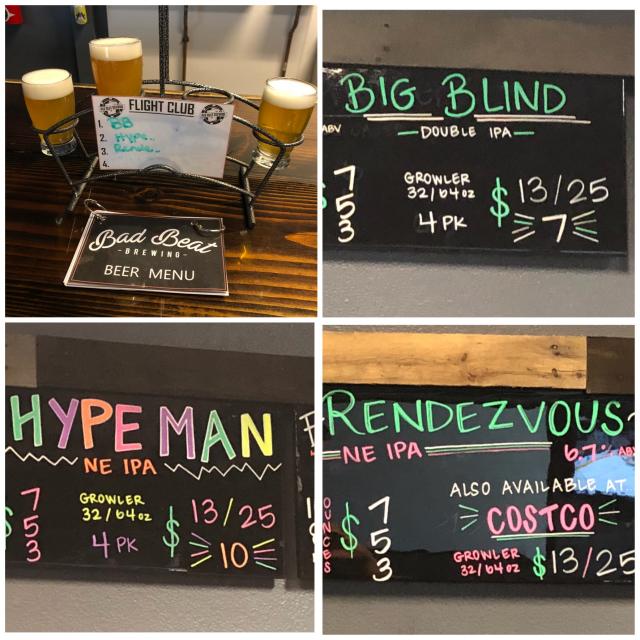 FLIGHT CLUB
1. BB
2. Hype..
3. Rende..
4.
Bad Beat
-BREWING-
BEER MENU
BIG BLIND
ABV
DOUBLE IPA
7
5
3
GROWLER
32/64oz
$13/25
4PK
7
HYPE MAN
NE IPA
$
7
5
3
GROWLER
32/64oz
$13/25
4PK
10
RENDEZVOUS
NE IPA
6.7% ABV
OUNCES
$
7
5
3
ALSO AVAILABLE AT
COSTCO
GROWLER
32/64oz
$13/25